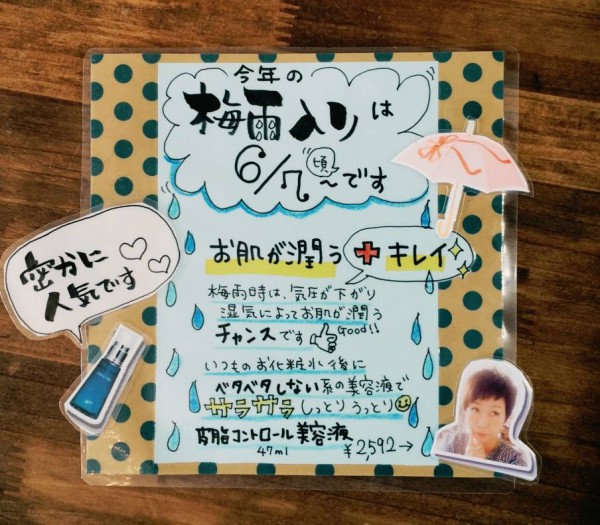 今年の
梅雨入りは
6/7頃〜です
お肌が潤う+キレイ
梅雨時は、気圧が下がり
湿気によってお肌が潤う
チャンスです Good!!
いつものお化粧水後に
ベタベタしない系の美容液で
サラサラしっとりうっとり
皮脂コントロール美容液
47ml ¥2,592→
密かに
人気です